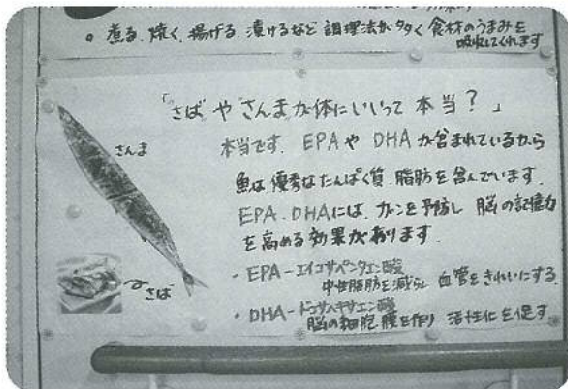 ○ 煮る、焼く、揚げる 漬けるなど 調理法が多く 食材のうまみを
吸収してくれます
「さばやさんまが体にいいって 本当？」
さんま
本当です。EPAや DHAが含まれているから
魚は優秀なたんぱく質 脂肪を含んでいます。
EPA・DHAには、ガンを予防し 脳の記憶力
を高める効果があります。
さば
・EPA－エイコサペンタエン酸
中性脂肪を減らし 血管をきれいにする
・DHA－ドコサヘキサエン酸
脳の細胞膜を作り 活性化を促す